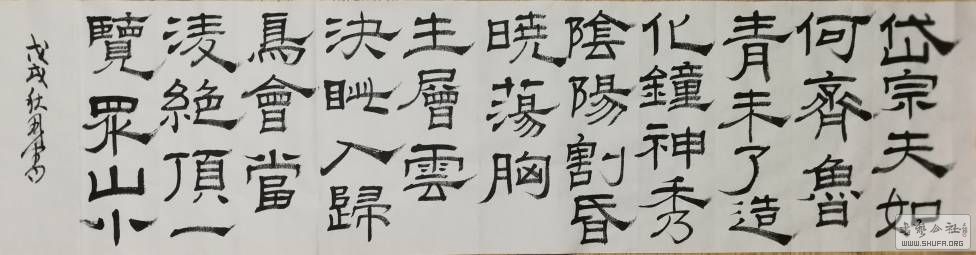 岱宗夫如
何齊魯
青未了造
化鐘神秀
陰陽割昏
曉蕩胸
生層雲
決眦入歸
鳥會當
凌絕頂一
覽眾山小
戊戌秋
公社
WWW.SHUFA.ORG